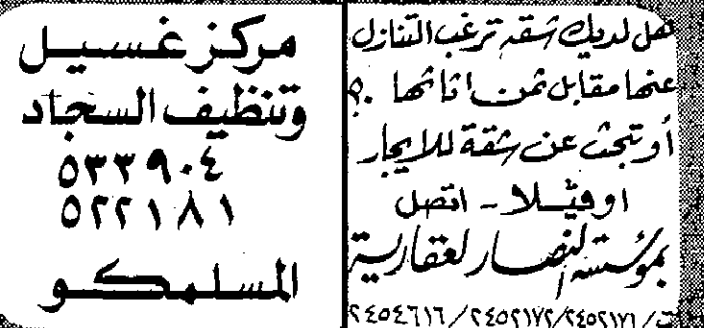 هل لديك شقة ترغب التنازل
عنها مقابل ثمن اثاثها ؟
أو تبحث عن شقة للايجار
او فيللا - اتصل
بمؤسسة النصار العقارية
ت/ ٢٤٥٢١٧١/ ٢٤٥٢١٧٢/ ٢٤٥٤٦١٦
مركز غسيل
وتنظيف السجاد
٥٣٣٩٠٤
٥٢٢١٨١
المسلمكو